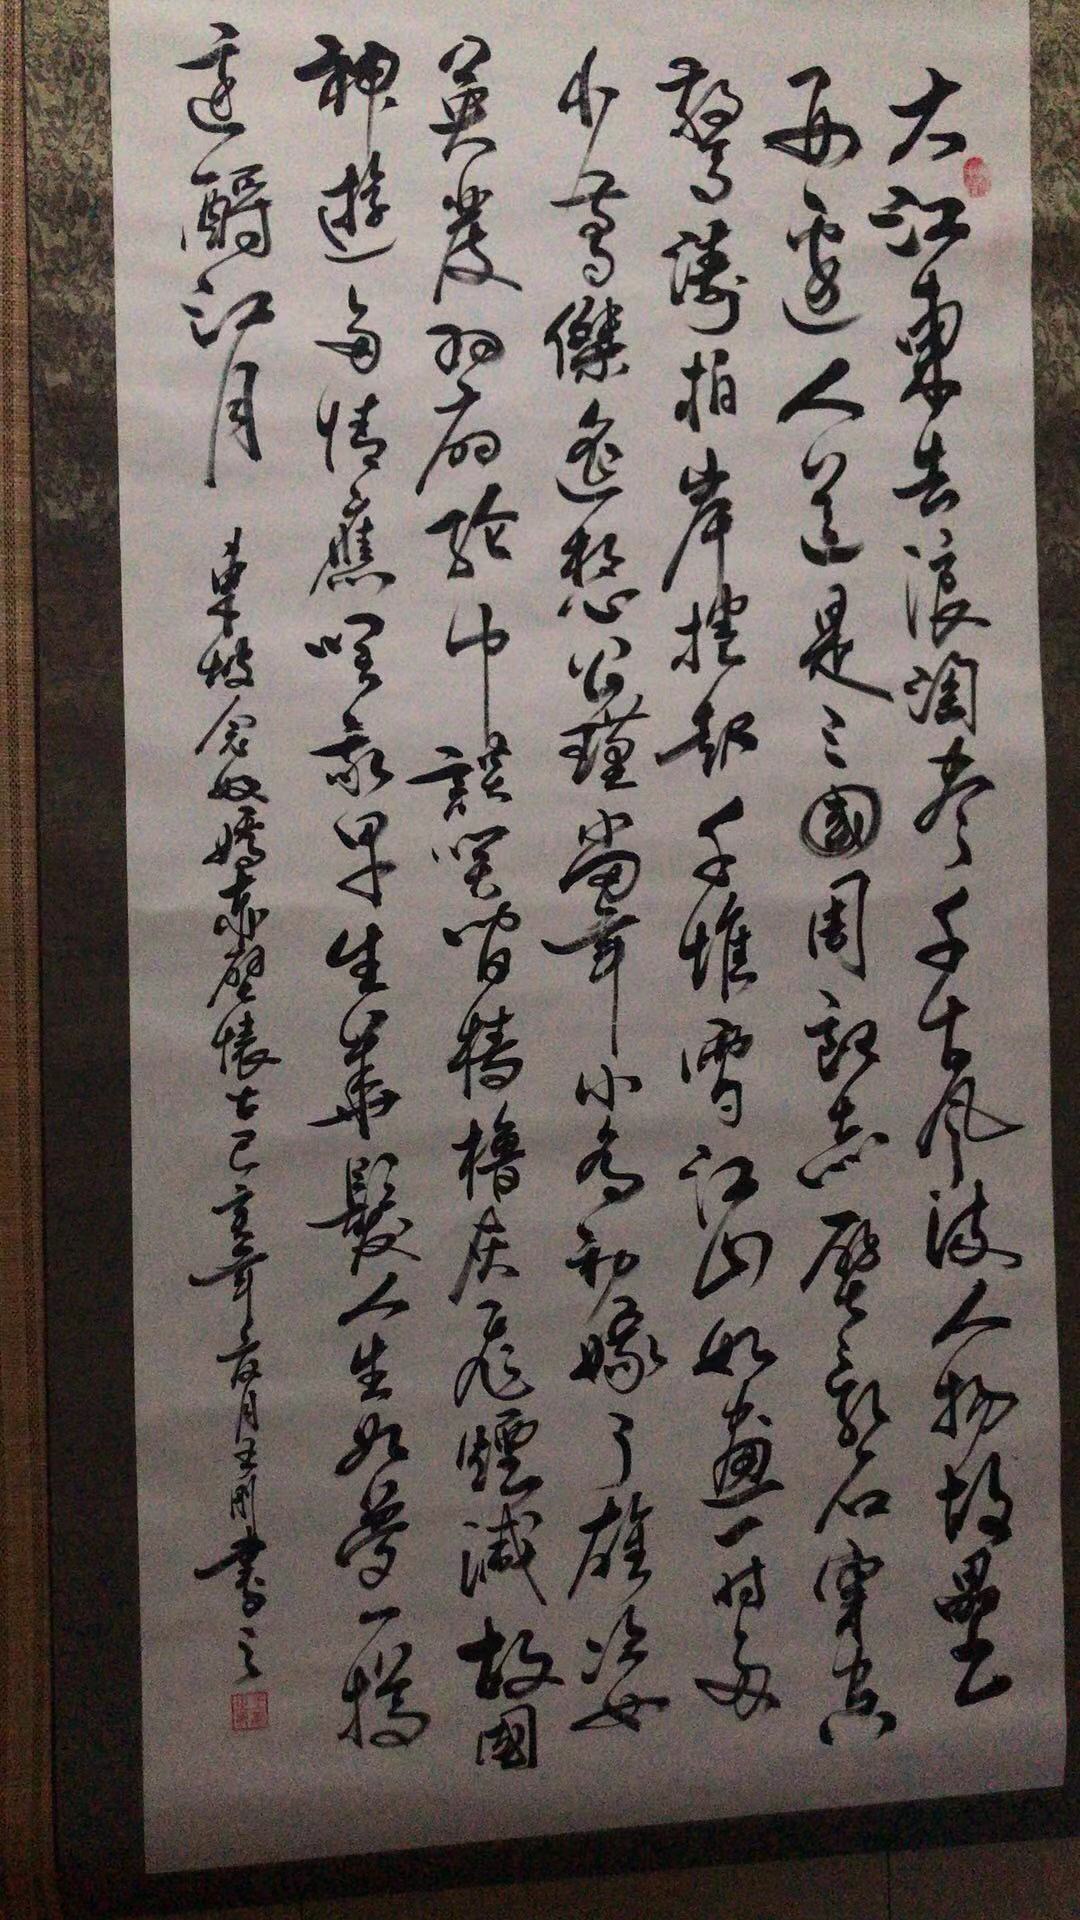 大江東去浪淘盡千古風流人物故壘
西邊人道是三國周郎赤壁亂石穿空
驚濤拍岸捲起千堆雪江山如畫一時多
少豪傑遙想公瑾當年小喬初嫁了雄姿
英發羽扇綸巾談笑間檣櫓灰飛煙滅故國
神遊多情應笑我早生華髮人生如夢一樽
還酹江月 東坡念奴嬌赤壁懷古己亥年夏月王剛書之